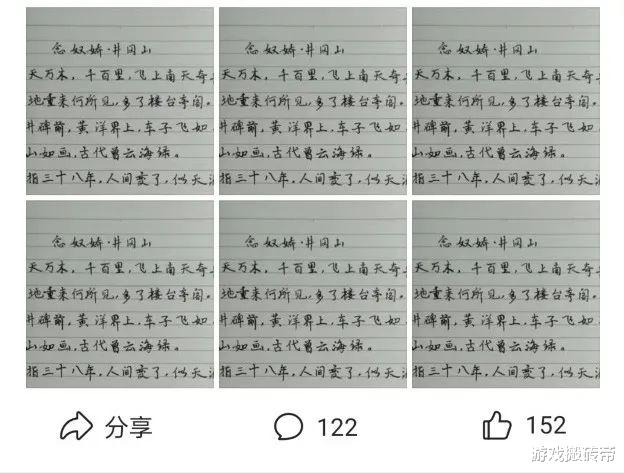 念奴娇·井冈山
天万木，千百里，飞上南天奇
地重来何所见，多了楼台亭阁。
井碑前，黄洋界上，车子飞如
山如画，古代曾云海绿。
指三十八年，人间变了，似天
念奴娇·井冈山
天万木，千百里，飞上南天奇
地重来何所见，多了楼台亭阁。
井碑前，黄洋界上，车子飞如
山如画，古代曾云海绿。
指三十八年，人间变了，似天
念奴娇·井冈山
天万木，千百里，飞上南天奇
地重来何所见，多了楼台亭阁。
井碑前，黄洋界上，车子飞如
山如画，古代曾云海绿。
指三十八年，人间变了，似天
念奴娇·井冈山
天万木，千百里，飞上南天奇
地重来何所见，多了楼台亭阁。
井碑前，黄洋界上，车子飞如
山如画，古代曾云海绿。
指三十八年，人间变了，似天
念奴娇·井冈山
天万木，千百里，飞上南天奇
地重来何所见，多了楼台亭阁。
井碑前，黄洋界上，车子飞如
山如画，古代曾云海绿。
指三十八年，人间变了，似天
念奴娇·井冈山
天万木，千百里，飞上南天奇
地重来何所见，多了楼台亭阁。
井碑前，黄洋界上，车子飞如
山如画，古代曾云海绿。
指三十八年，人间变了，似天
分享 122 152
游戏搬砖帝